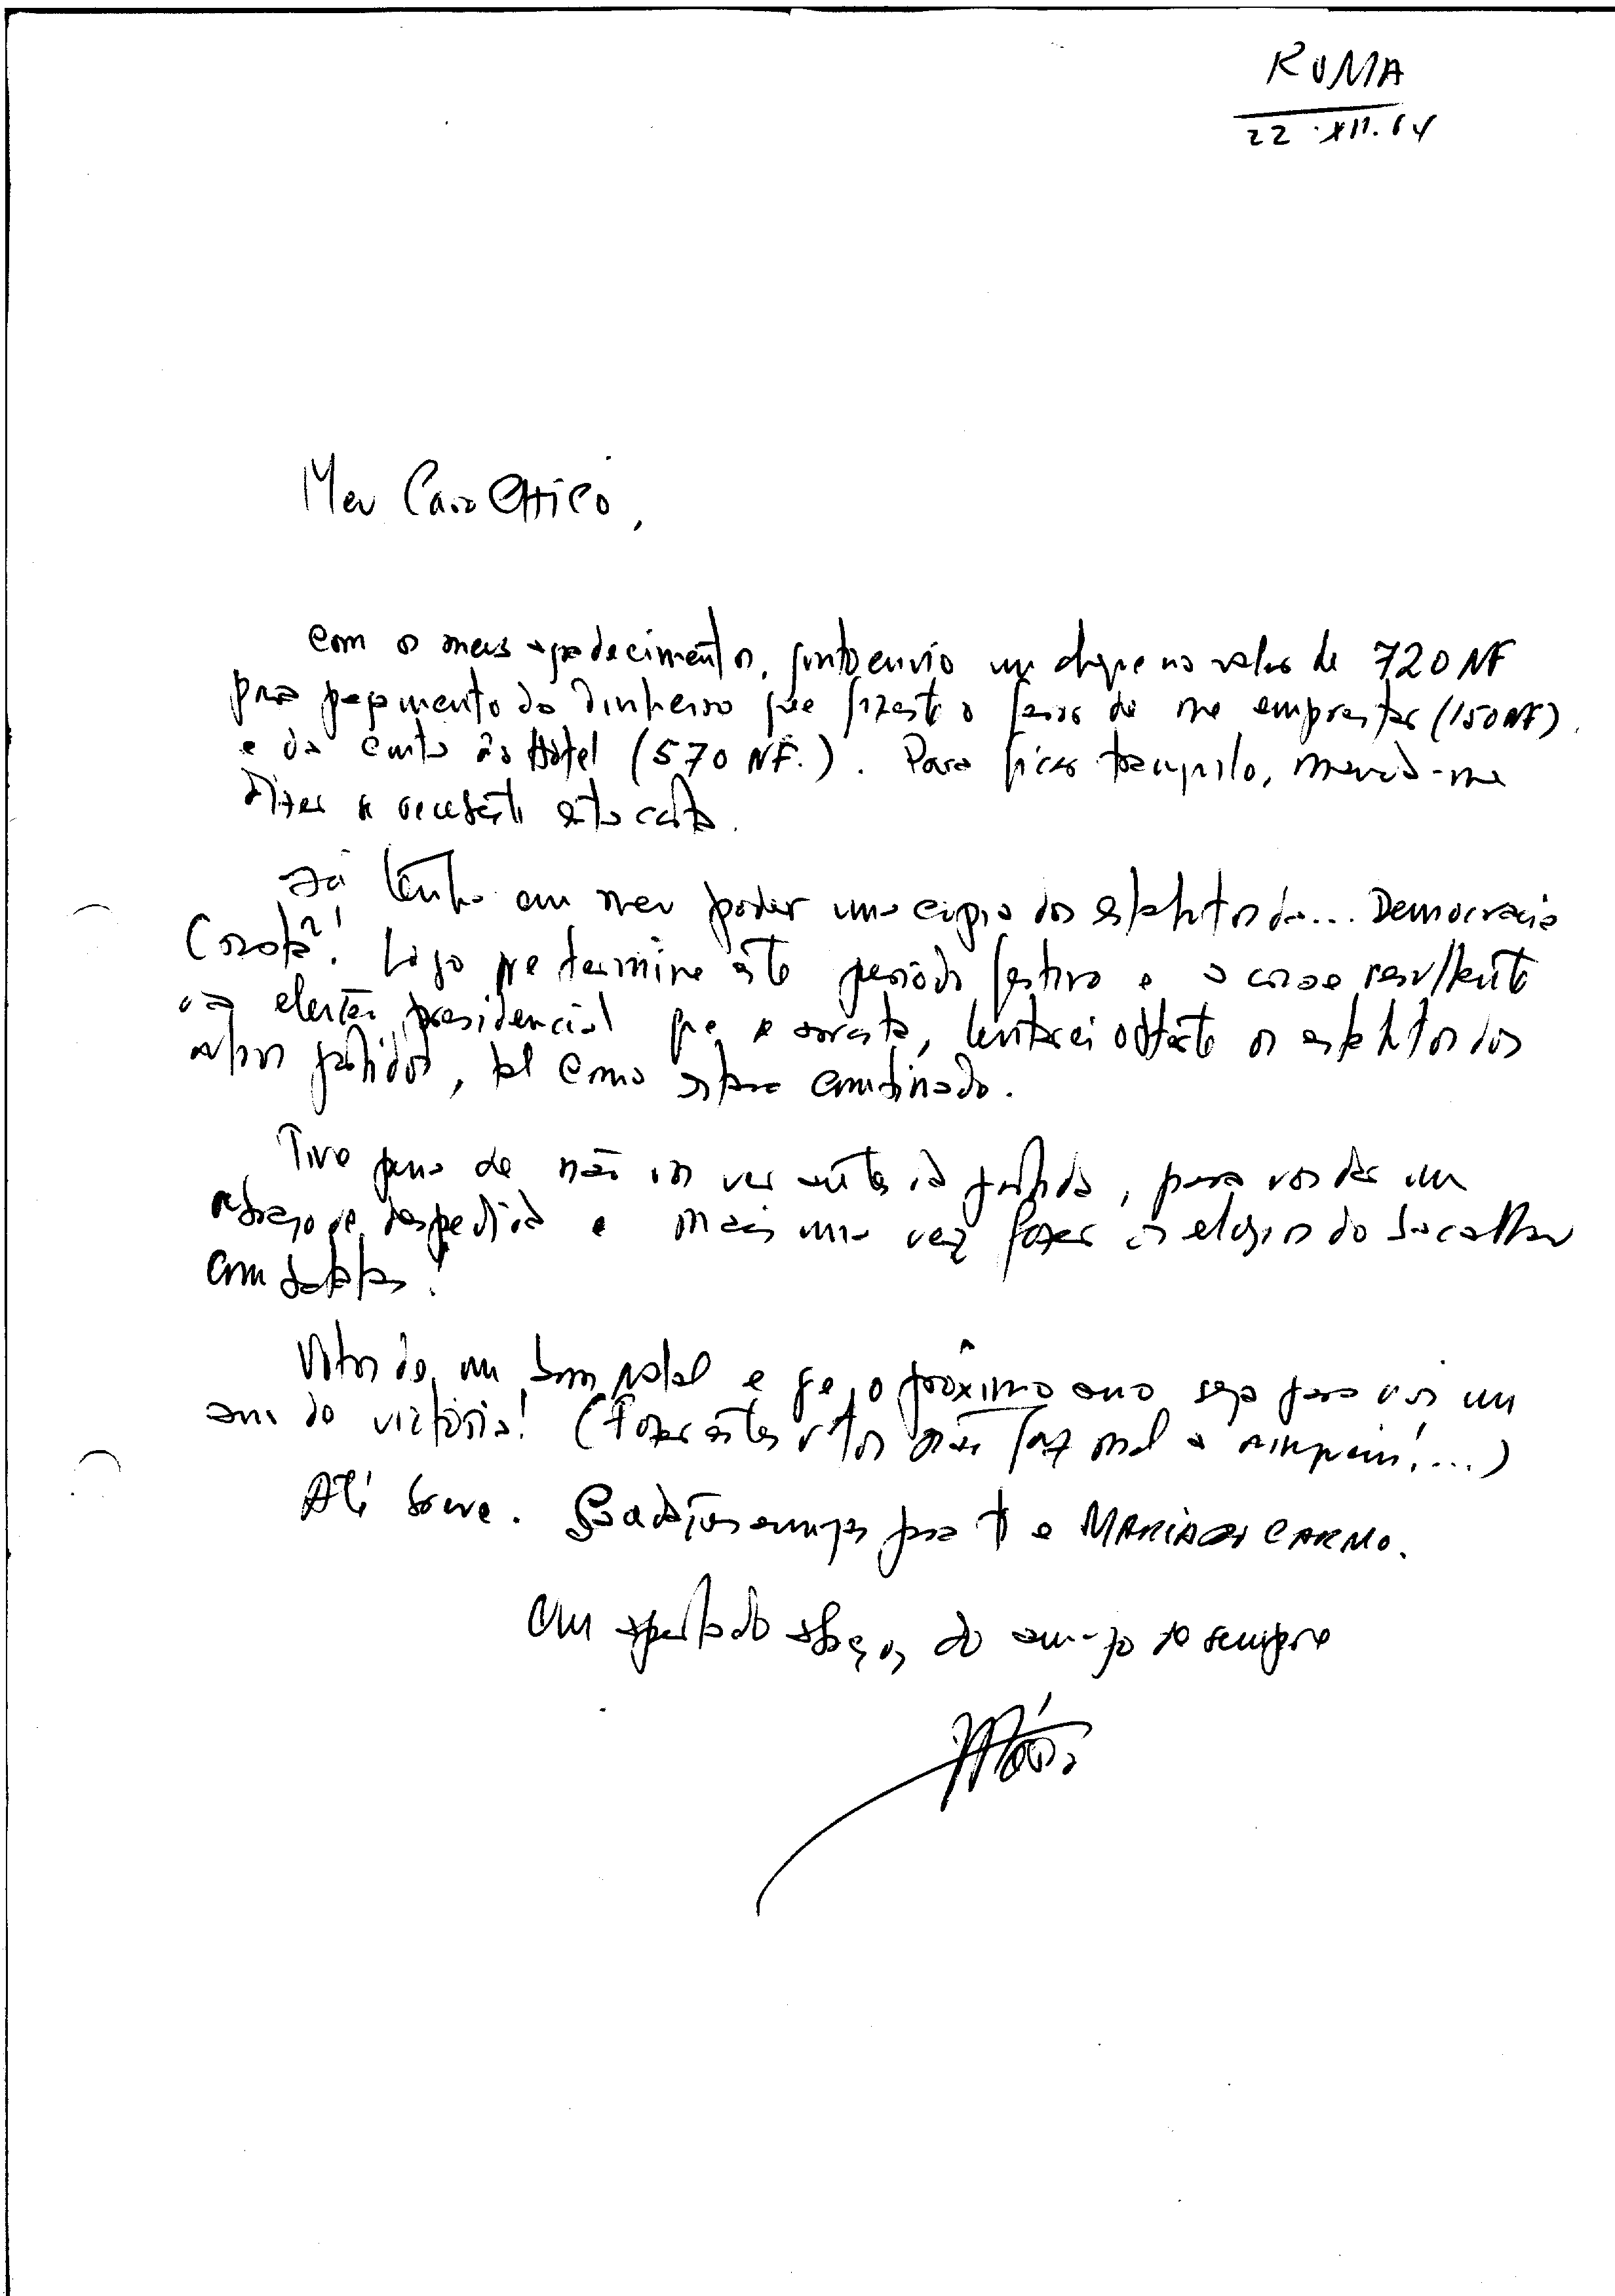 ROMA
22.XII.64
Meu Caro Chico,
Com os meus agradecimentos, junto envio um cheque no valor de 720 NF
para pagamento do dinheiro que fizeste o favor de me emprestar (150 NF)
e da conta do Hotel (570 NF.). Para ficar tranquilo, manda-me
dizer se recebeste esta carta.
Já tenho em meu poder uma cópia dos estatutos da... Democracia
Cristã! Logo que termine este período festivo e a crise resultante
da eleição presidencial que se arrasta, tentarei obter-te os estatutos dos
outros partidos, tal como estava combinado.
Tive pena de não vos ver antes da partida, para vos dar um
abraço de despedida e mais uma vez fazer os elogios do bacalhau
com batatas!
Votos de um bom Natal e que o próximo ano seja para vós um
ano de victória! (Fazer estes votos não faz mal a ninguém!...)
Até breve. Saudações amigas para ti e MARIA DO CARMO.
Um apertado abraço, do amigo de sempre
Mário